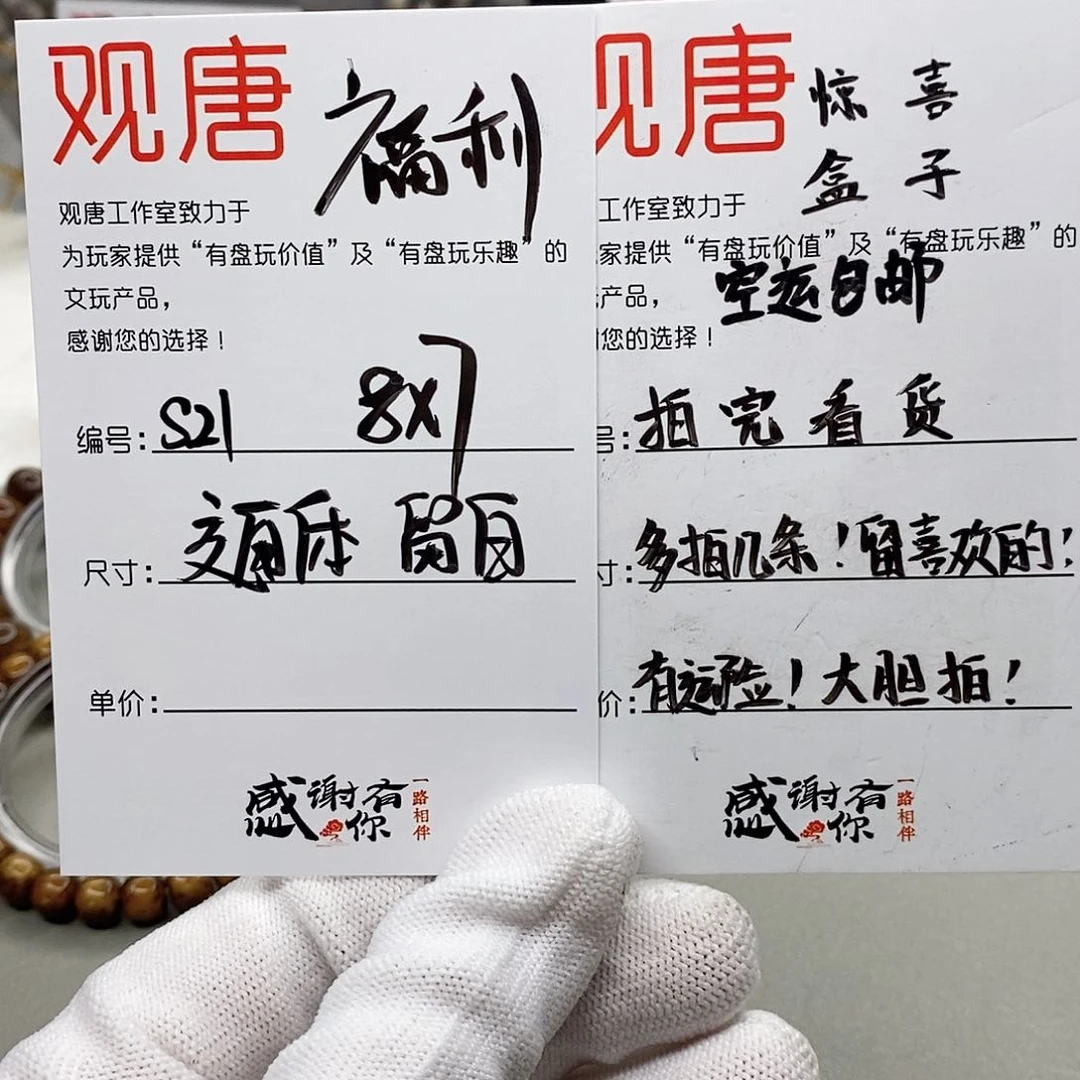 观唐
福利
观唐工作室致力于
为玩家提供“有盘玩价值”及“有盘玩乐趣”的
文玩产品，
感谢您的选择！
编号：S21 8X7
尺寸： 留白
单价：
感谢有你
一路相伴
观唐
惊喜
盒子
工作室致力于
家提供“有盘玩价值”及“有盘玩乐趣”的
空运包邮
产品，
您的选择！
号：拍完看货
寸：多拍几条！留喜欢的！
价：有运险！大胆拍！
感谢有你
一路相伴